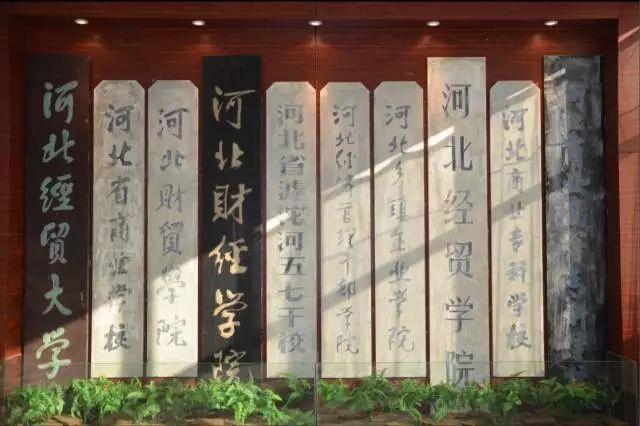 河北經贸大学
河北省商业学校
河北財貿学院
河北財經学院
河北省滹沱河五七干校
河北经济管理干部学院
河北乡镇企业学院
河北经贸学院
河北商业专科学校